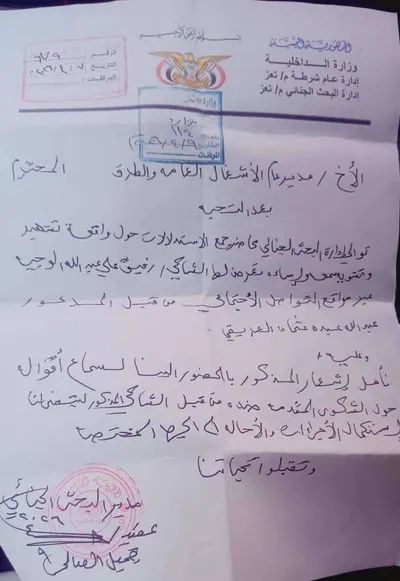 بسم الله الرحمن الرحيم
الجمهورية اليمنية
وزارة الداخلية
إدارة عام شرطة م/ تعز
إدارة البحث الجنائي م/ تعز
الرقم
التاريخ
المرفقات
الأخ / مدير عام الأشغال العامه والطرق المحترم
بعد التحيه
إدارة البحث الجنائي محاضر جمع الاستدلالات حول واقعة تشهير
سمعه وإساءه من الشاكي / رفيق علي عبدالله الوجيه
عبر مواقع التواصل الاجتماعي من قبل المدعو
عبدالله عبده عثمان
وعليه
نأمل إشعار المذكور بالحضور الينا لسماع أقواله
حول الشكوى المقدمه ضده من قبل الشاكي المذكور ليتسنى لنا
إستكمال الأجراءات والأحاله الى الجهه المختصه
وتقبلوا تحياتنا
مدير البحث الجنائي
عميد /
جميل الصالحي